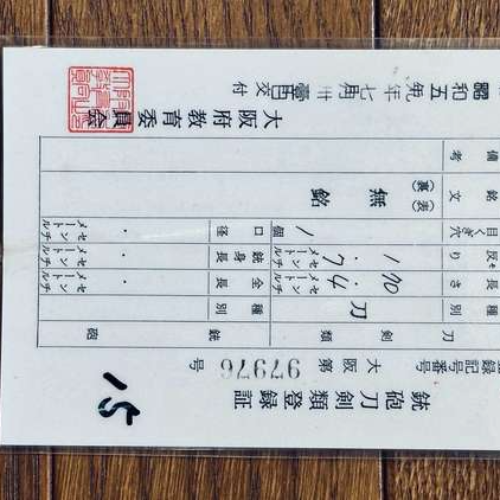 銃砲刀剣類登録証
登録記号番号 大阪 第 97976 号
刀 剣 類
種別 刀
長さ 70.4 センチメートル
反り 1.7 センチメートル
目くぎ穴 1個
銘文 (表) 無銘
(裏)
備考
銃 砲
種別
全長 ・ センチメートル
銃身長 ・ センチメートル
口径 ・ センチメートル
昭和五九年七月卅壹日交付
大阪府教育委員会
15